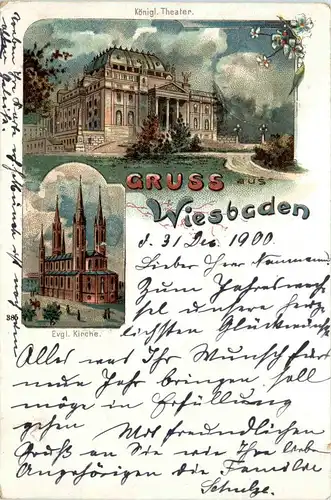 Königl. Theater.
GRUSS aus
Wiesbaden
d. 31 Dez. 1900.
Lieber Herr Naumann
Zum Jahreswech
sel unsere herz
lichsten Glückwünsche
386
Evgl. Kirche.
Alles was Ihr Wunsch fürs
neue Jahr bringen soll
möge in Erfüllung
gehen Mit freundlichen
Gruß an Sie wie Ihre liebe
Angehörigen die Familie
Schulze.